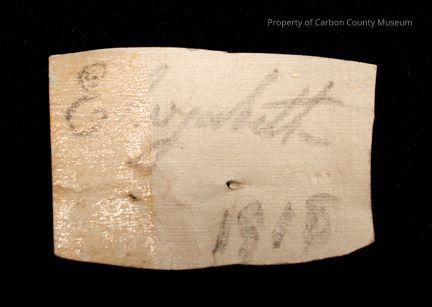 Property of Carbon County Museum
Elizabeth
1918